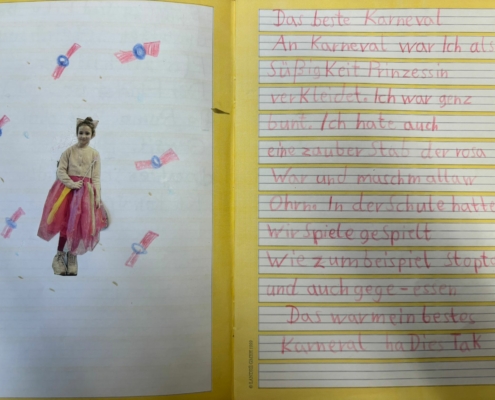 Das beste Karneval
An Karneval war Ich als
Süßigkeit Prinzessin
verkleidet. Ich war genz
bunt. Ich hate auch
eine zauber Stab der rosa
War und
Ohrn. In der Schule hatte
wir spiele gespielt
Wie zum beispiel stopta
und auch gege-essen
Das war mein bestes
Karneval ha Dies Tak